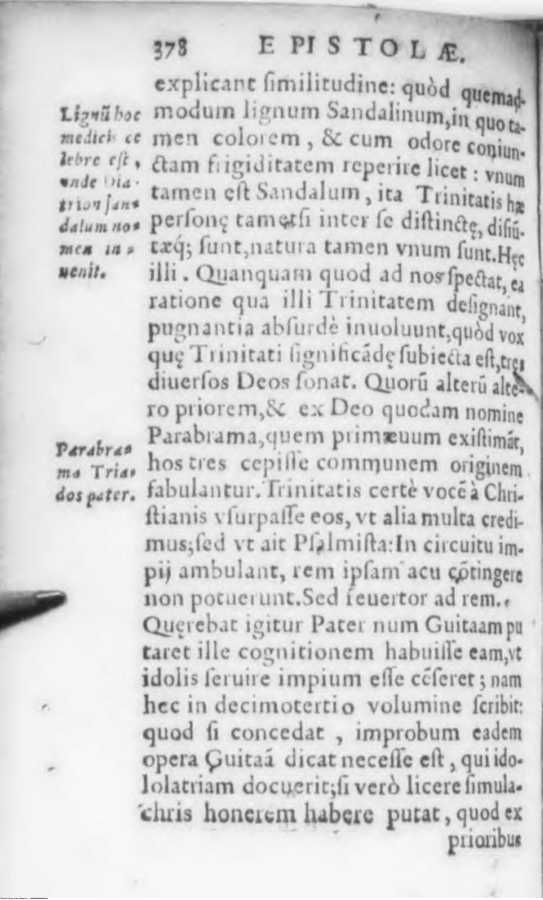 378 EPISTOLÆ.
explicant ſimilitudine: quòd quemad-
modum lignum Sandalinum, in quo ta-
men colorem, & cum odore coniun-
ctam frigiditatem reperire licet: vnum
tamen eſt Sandalum, ita Trinitatis hæ
perſonę tametſi inter ſe diſtinctę, diſiũ-
tæq; ſunt, natura tamen vnum ſunt. Hęc
illi. Quanquam quod ad nos ſpectat, ea
ratione qua illi Trinitatem deſignant,
pugnantia abſurdè inuoluunt, quòd vox
quę Trinitati ſignificãdę ſubiecta eſt, tres
diuerſos Deos ſonat. Quorũ alterũ alte-
ro priorem, & ex Deo quodam nomine
Parabrama, quem primæuum exiſtimãt,
hos tres cepiſſe communem originem
fabulantur. Trinitatis certè vocẽ à Chri-
ſtianis vſurpaſſe eos, vt alia multa credi-
mus; ſed vt ait Pſalmiſta: In circuitu im-
pij ambulant, rem ipſam acu cõtingere
non potuerunt. Sed reuertor ad rem.
Quęrebat igitur Pater num Guitaam pu
taret ille cognitionem habuiſſe eam, vt
idolis ſeruire impium eſſe cẽſeret; nam
hec in decimotertio volumine ſcribit:
quod ſi concedat, improbum eadem
opera Guitaã dicat neceſſe eſt, qui ido-
lolatriam docuerit; ſi verò licere ſimula-
chris honerem habere putat, quod ex
prioribus
Lignũ hoc
medicis ce
lebre eſt,
vnde Dia-
trion ſan-
dalum no-
men in-
uenit.
Parabra-
ma Tria-
dos pater.